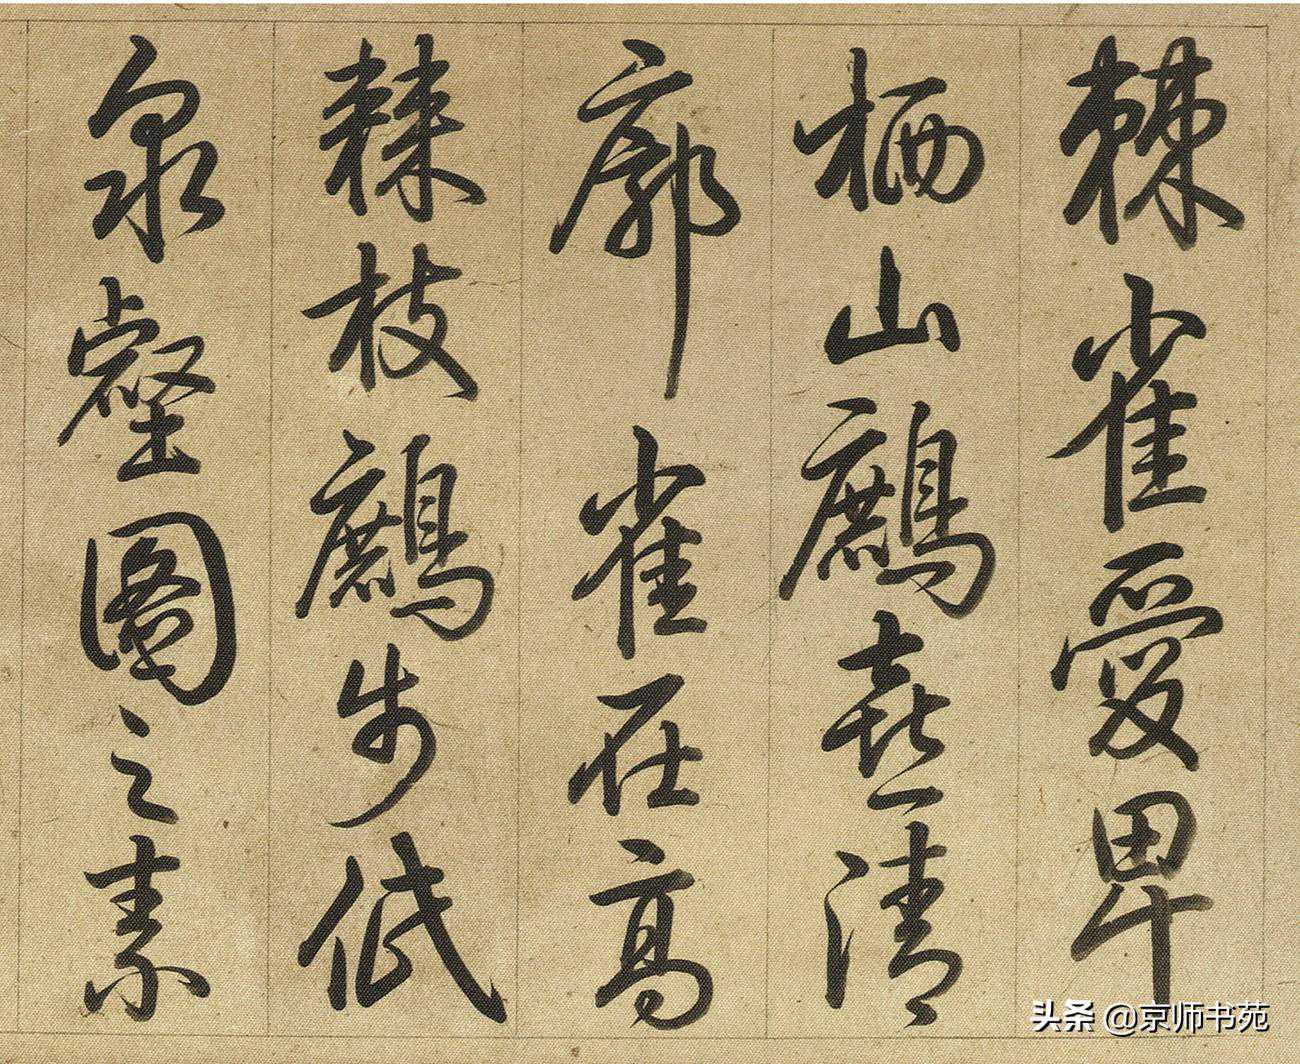 棘雀愛卑
栖山鷓喜清
廓雀在高
棘枝鷓步低
泉壑圖之素
头条 @京师书苑